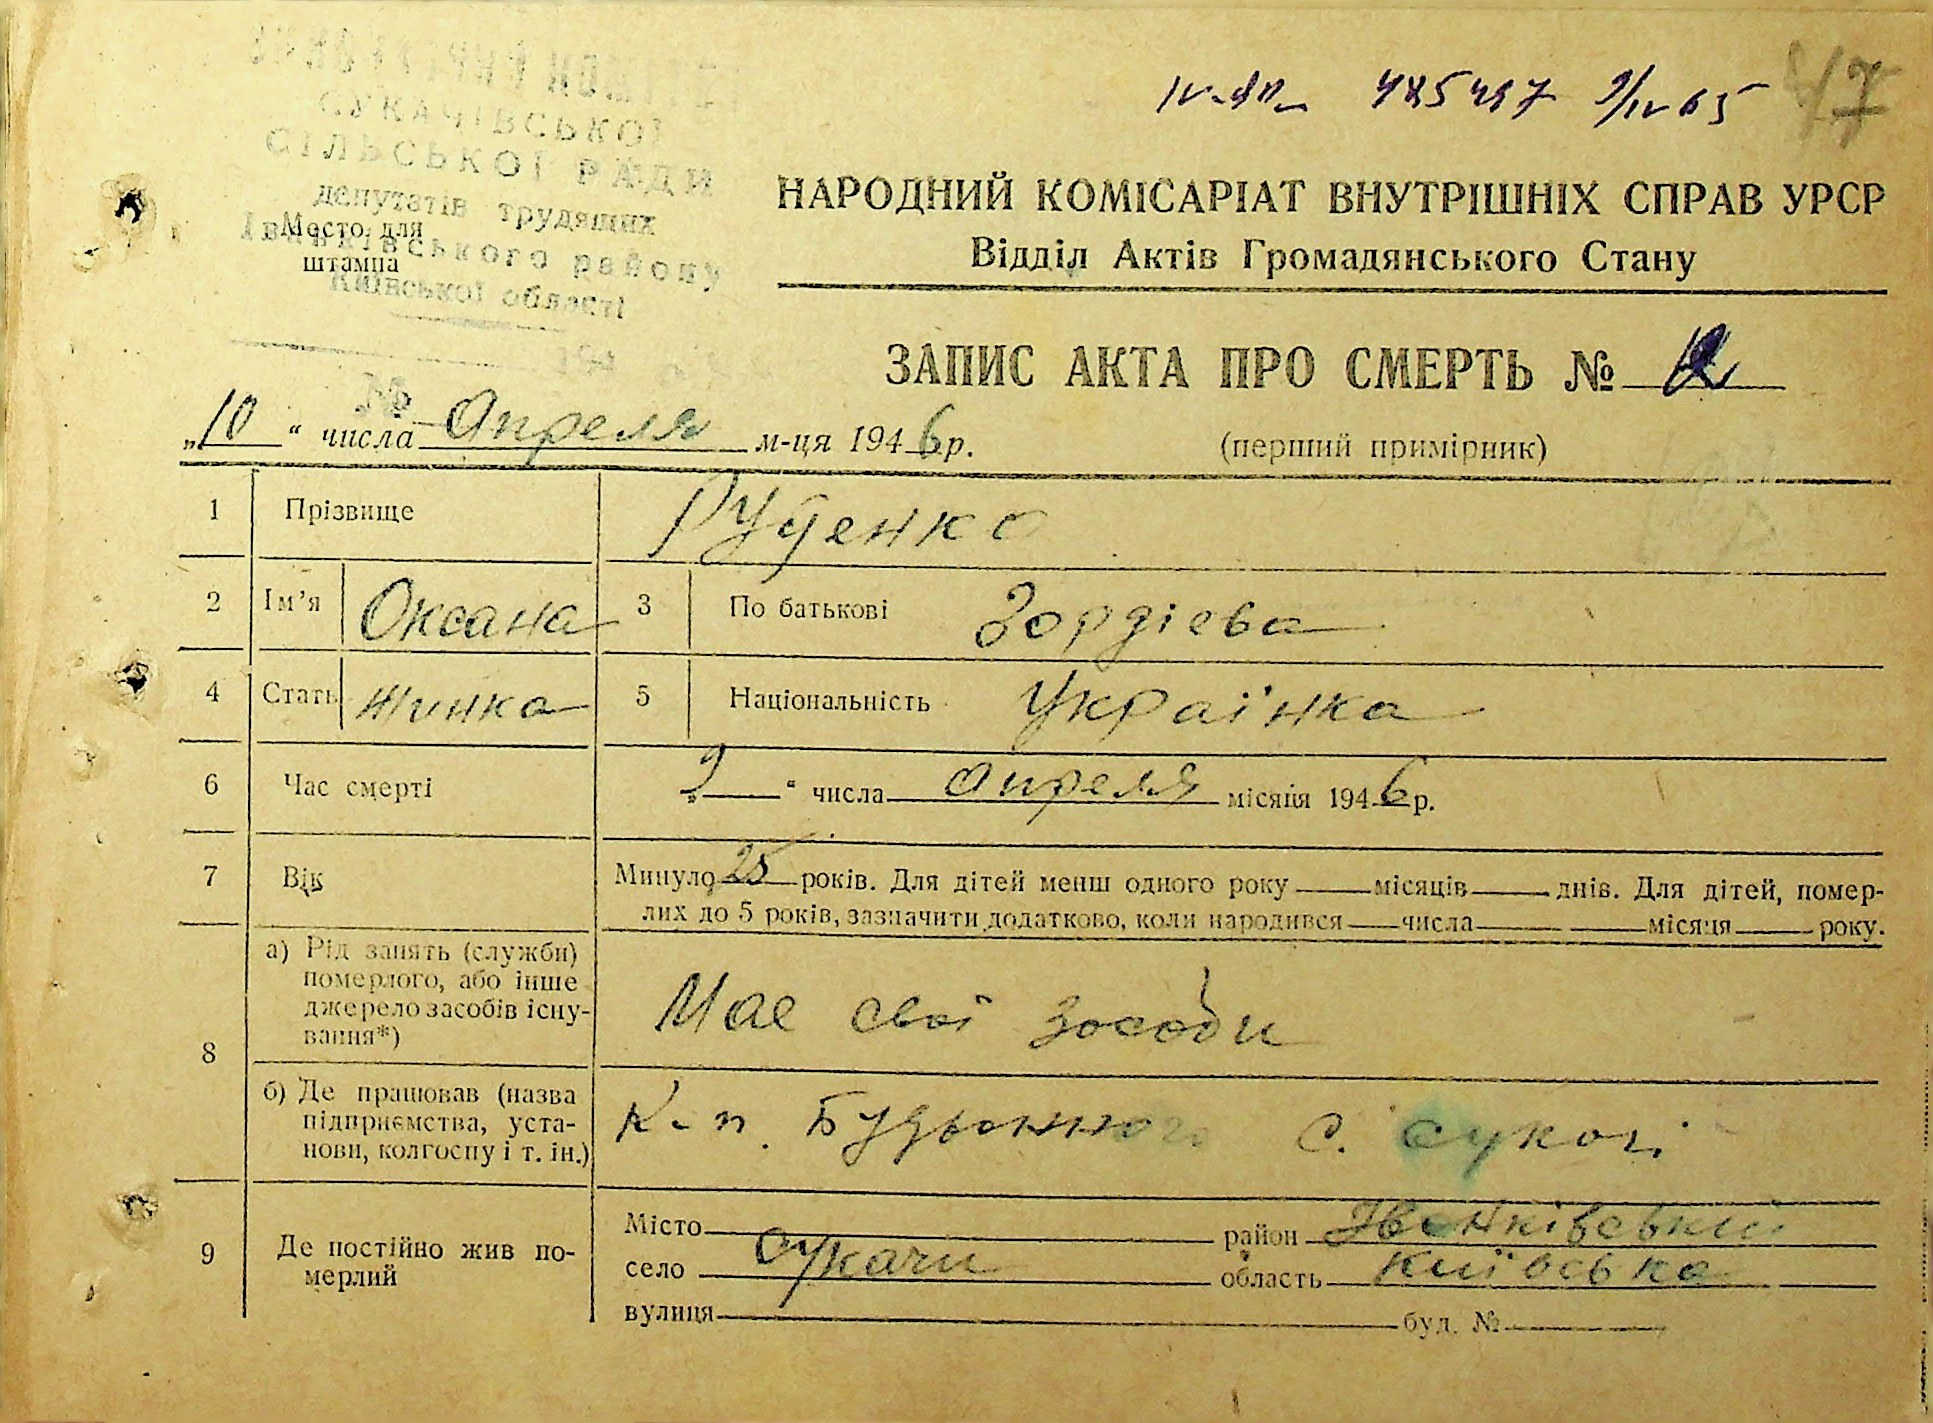 47
485497 9/IV 65
СУКАЧІВСЬКОЇ
СІЛЬСЬКОЇ РАДИ
депутатів трудящих
Іванківського району
Київської області
Место для
штампа
НАРОДНИЙ КОМІСАРІАТ ВНУТРІШНІХ СПРАВ УРСР
Відділ Актів Громадянського Стану
ЗАПИС АКТА ПРО СМЕРТЬ №
„10“ числа Апреля м-ця 1946 р.
(перший примірник)
1 Прізвище Руденко
2 Ім’я Оксана 3 По батькові Гордієва
4 Стать жинка 5 Національність Українка
6 Час смерті „9“ числа Апреля місяця 1946 р.
7 Вік Минуло 25 років. Для дітей менш одного року місяців днів. Для дітей, помер-
лих до 5 років, зазначити додатково, коли народився числа місяця року.
8 а) Рід занять (служби)
померлого, або інше
джерело засобів існу-
вання*)
Має свої засоби
б) Де працював (назва
підприємства, уста-
нови, колгоспу і т. ін.)
К-п. Будьонного с. Сукачі
9 Де постійно жив по-
мерлий
Місто район Іванківський
село Сукачи область Київська
вулиця буд. №